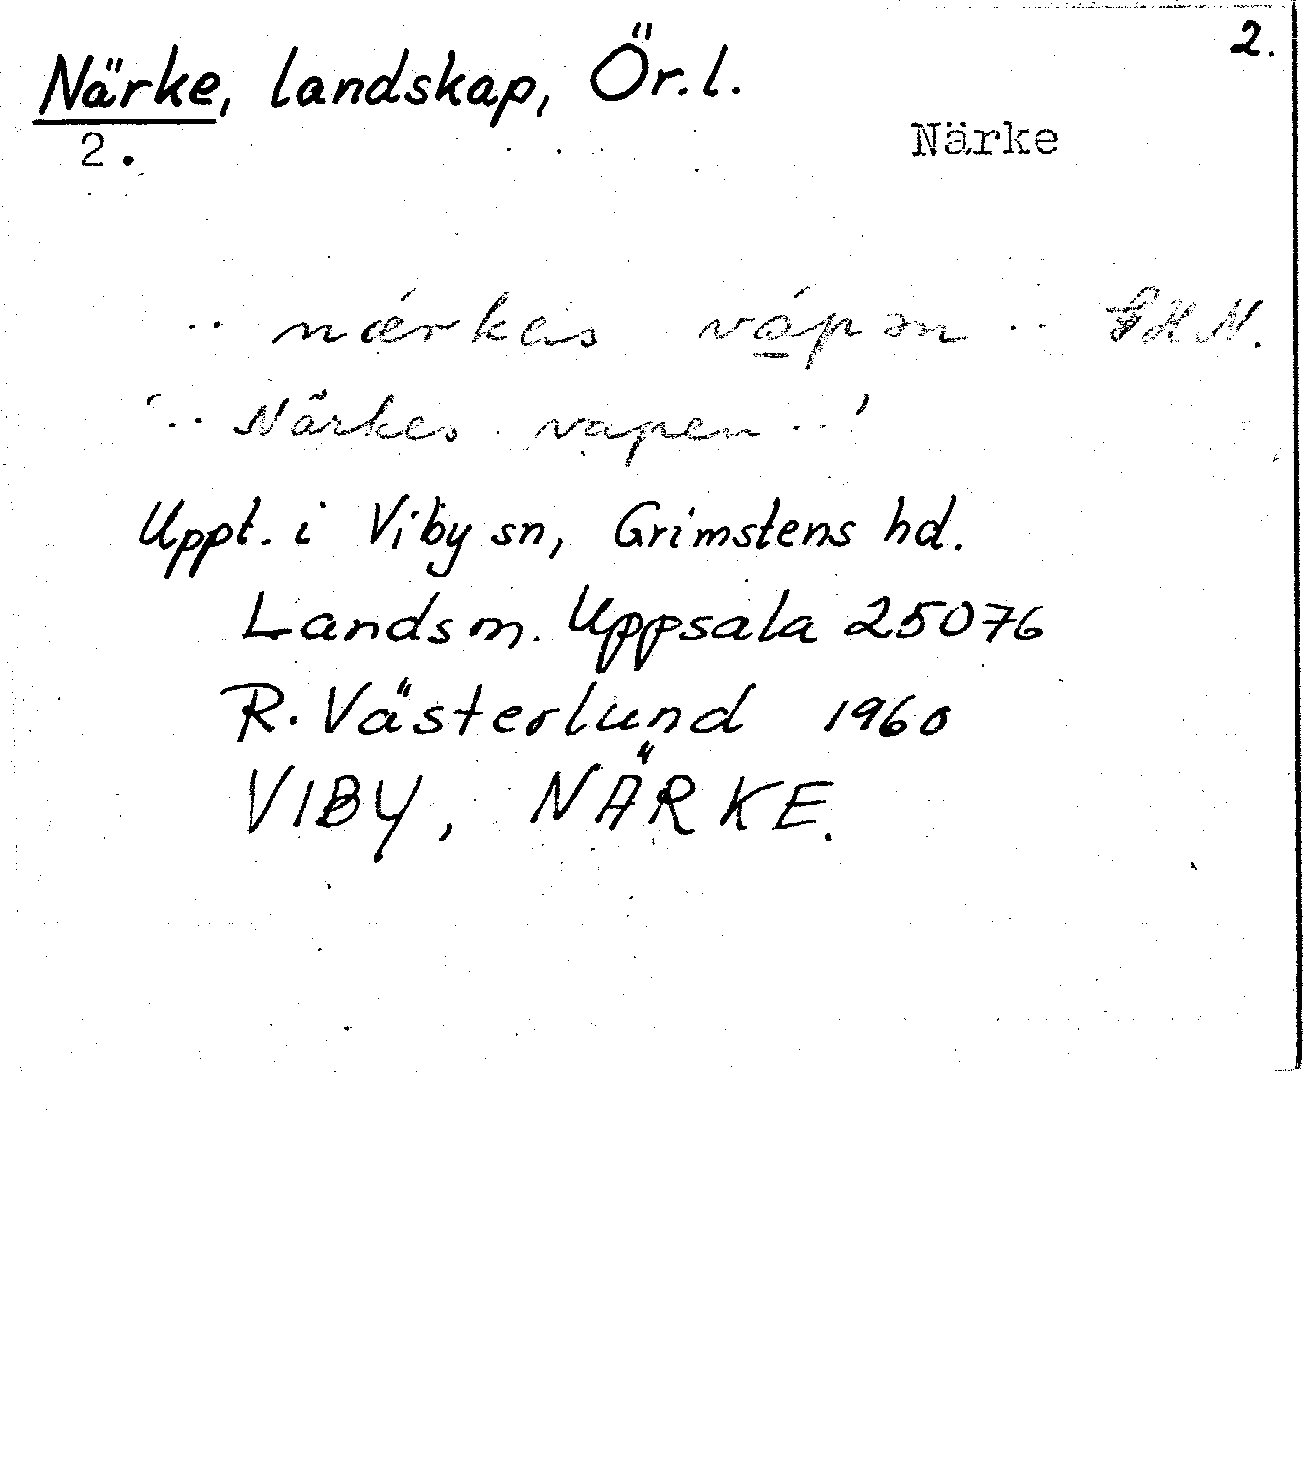 2.
Närke, landskap, Ör.l.
2.
Närke
·· nǽrkəs vápən ·· GHN.
'·· Närkes vapen ··'
Uppt. i Viby sn, Grimstens hd.
Landsm. Uppsala 25076
R. Västerlund 1960
VIBY, NÄRKE.